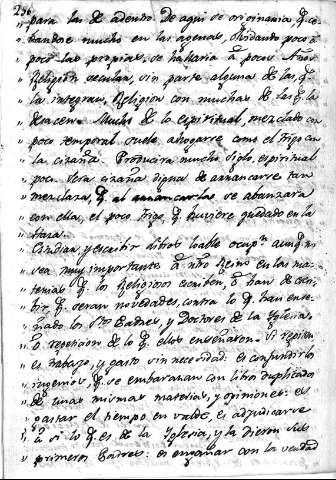 236
" para las de adentro. De aqui se originaria q.e e-
" handose mucho en las agenas, olvidando poco â
" poco las propias, se hallaria â pocos Años
" Religion secular, sin parte alguna de las q.e
" la integran, Religion con muchas de las q.e la
" desacen. Mucho de lo espiritual, mezclado con
" poco temporal suele ahogarse como el trigo con
" la cizaña. Producira mucho siglo, espiritual
" poco. Sera cizaña digna de arrancarse tan
" mezclaza, q.e al arrancarlas se abanzara
" con ella, el poco trigo, q.e huviere quedado en la
" taza.
" Estudiar, y escribir libros loable ocup.on aunq.e no
" sea muy importante â nro Reyno en las ma-
" terias q.e los Religiosos escriben, ô han de escri-
" bir q.e seran novedades, contra lo q.e han ense-
" ñado los S.tos Padres, y Doctores de la Iglesia,
" ô repeticion de lo q.e ellos enseñaron. Si repiten
" es trabajo, y gasto sin necesidad: es confundir los
" ingenios, q.e se embarazan con libros duplicados
" de unas mismas materias, y opiniones: es
" gastar el tiempo en valde, es adjudicarse
" â si lo q.e es de la Iglesia, y la dieron sus
" primeros Padres: es engañar con la verdad